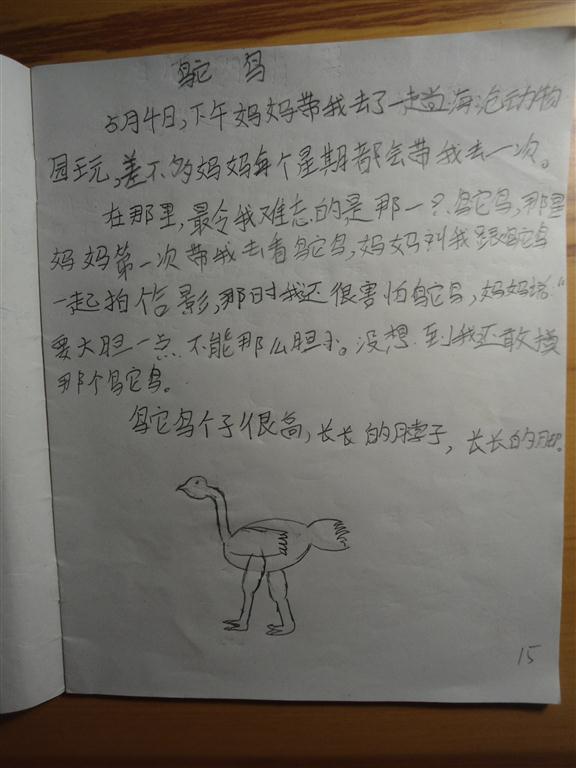 鸵 鸟
5月4日,下午妈妈带我去了一趟海沧动物
园玩,差不够妈妈每个星期都会带我去一次。
在那里,最令我难忘的是那一只鸵鸟,那是
妈妈第一次带我去看鸵鸟,妈妈叫我跟鸵鸟
一起拍合影,那时我还很害怕鸵鸟,妈妈说“
要大胆一点 不能那么胆小。没想到我还敢摸
那个鸵鸟。
鸵鸟个子很高,长长的脖子,长长的脚。
15